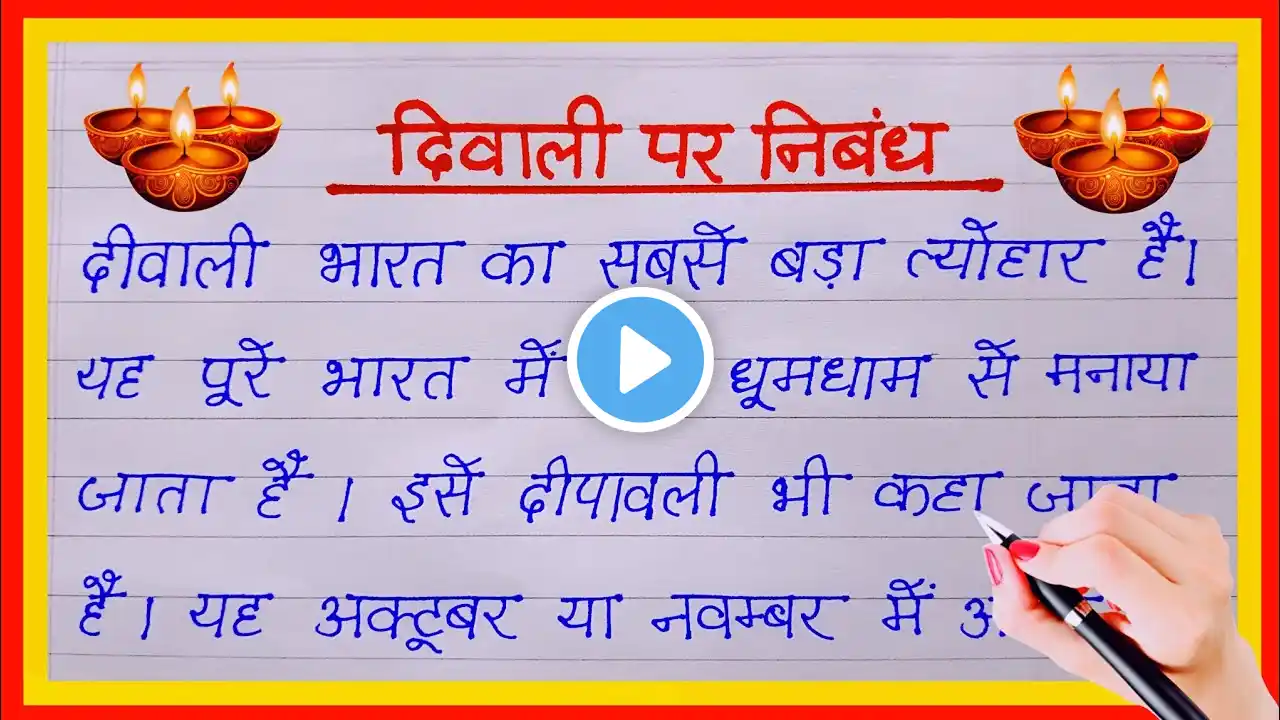 दिवाली पर निबंध
दीवाली भारत का सबसे बड़ा त्योहार है।
यह पूरे भारत में धूमधाम से मनाया
जाता है। इसे दीपावली भी कहा जाता
है। यह अक्टूबर या नवम्बर में